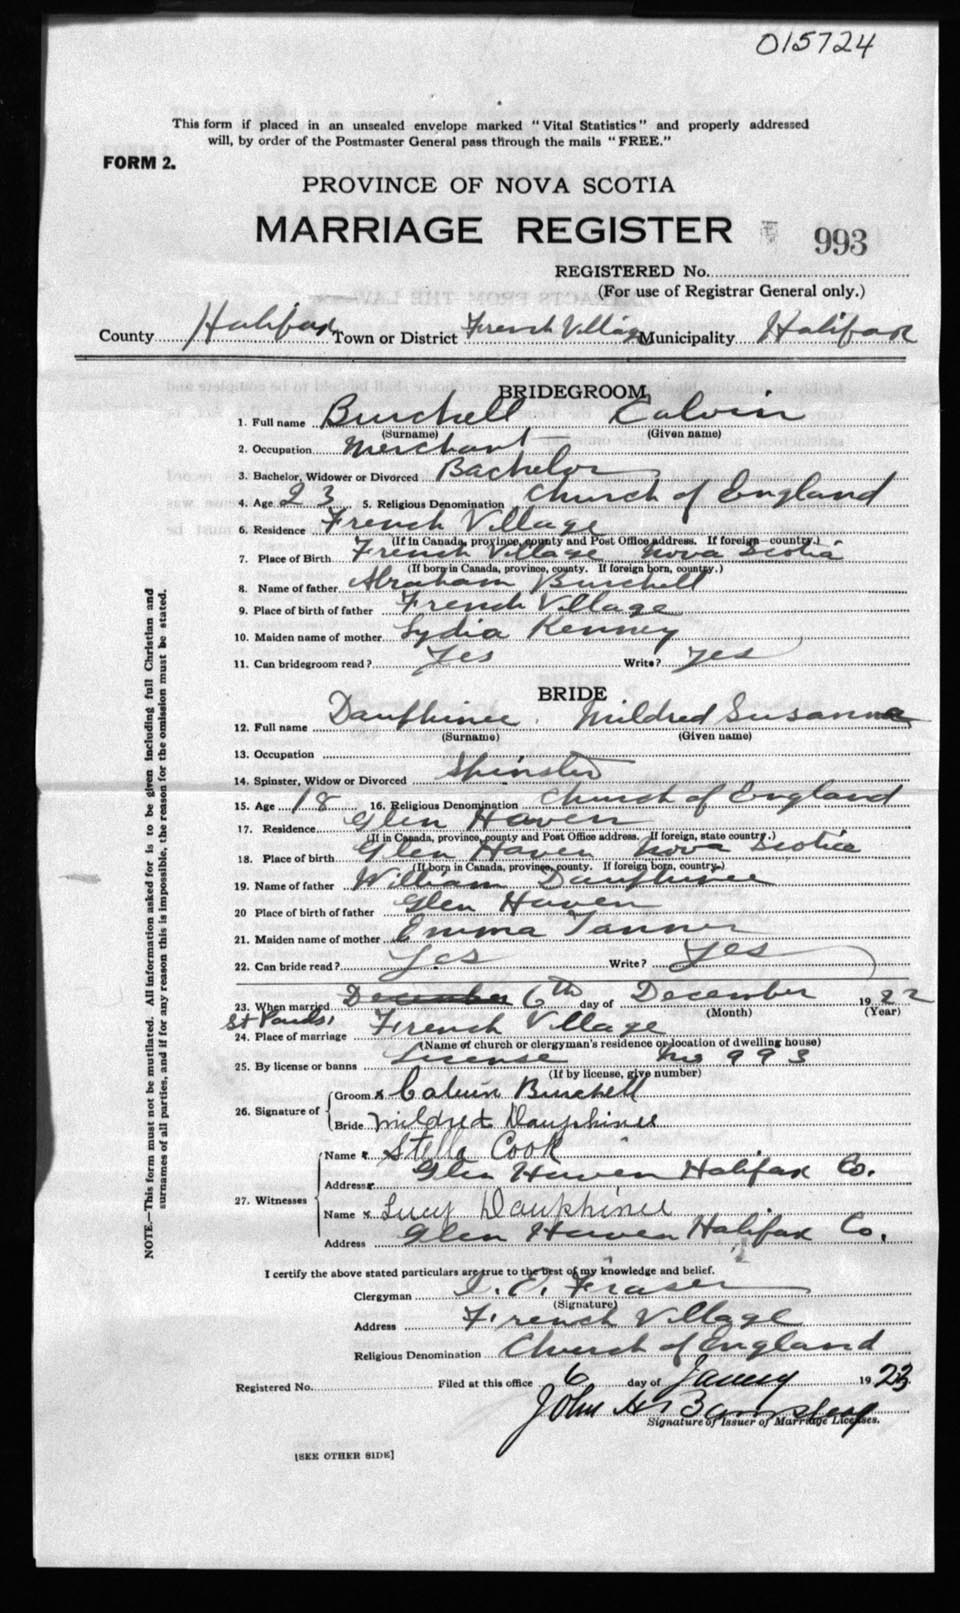 015724
This form if placed in an unsealed envelope marked "Vital Statistics" and properly addressed
will, by order of the Postmaster General pass through the mails "FREE."
FORM 2.
PROVINCE OF NOVA SCOTIA
MARRIAGE REGISTER
993
REGISTERED No.
(For use of Registrar General only.)
County Halifax Town or District French Village Municipality Halifax
BRIDEGROOM
1. Full name Burchell Calvin
(Surname) (Given name)
2. Occupation Merchant
3. Bachelor, Widower or Divorced Bachelor
4. Age 23 5. Religious Denomination Church of England
6. Residence French Village
(If in Canada, province, county and Post Office address. If foreign—country.)
7. Place of Birth French Village Nova Scotia
(If born in Canada, province, county. If foreign born, country.)
8. Name of father Abraham Burchell
9. Place of birth of father French Village
10. Maiden name of mother Lydia Kenney
11. Can bridegroom read? Yes Write? Yes
BRIDE
12. Full name Dauphinee. Mildred Susanna
(Surname) (Given name)
13. Occupation
14. Spinster, Widow or Divorced Spinster
15. Age 18 16. Religious Denomination Church of England
17. Residence Glen Haven
(If in Canada, province, county and Post Office address. If foreign, state country.)
18. Place of birth Glen Haven Nova Scotia
(If born in Canada, province, county. If foreign born, country.)
19. Name of father William Dauphinee
20 Place of birth of father Glen Haven
21. Maiden name of mother Emma Tanner
22. Can bride read? Yes Write? Yes
23. When married December 6th day of December 1922
(Month) (Year)
St Pauls,
24. Place of marriage French Village
(Name of church or clergyman's residence or location of dwelling house)
25. By license or banns License No 993
(If by license, give number)
26. Signature of
Groom x Calvin Burchell
Bride Mildred Dauphinee
27. Witnesses
Name x Stella Cook
Address Glen Haven Halifax Co.
Name x Lucy Dauphinee
Address Glen Haven Halifax Co.
I certify the above stated particulars are true to the best of my knowledge and belief.
Clergyman Fraser
(Signature)
Address French Village
Religious Denomination Church of England
Registered No. Filed at this office 6 day of 1923
John
Signature of Issuer of Marriage Licenses.
[SEE OTHER SIDE]
NOTE.—This form must not be mutilated. All information asked for is to be given including full Christian and
surnames of all parties, and if for any reason this is impossible, the reason for the omission must be stated.